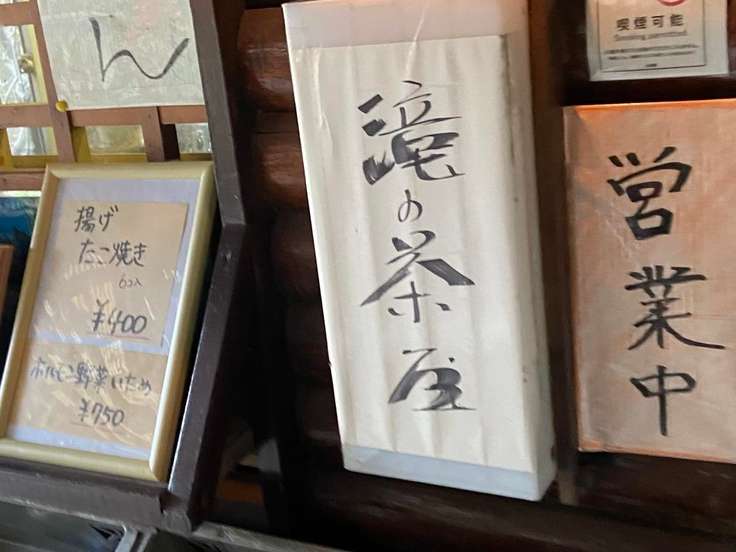 ん
揚げ
たこ焼き
6コ入
¥400
ホルモン野菜いため
¥750
滝の茶屋
喫煙可能
Smoking permitted
営業中